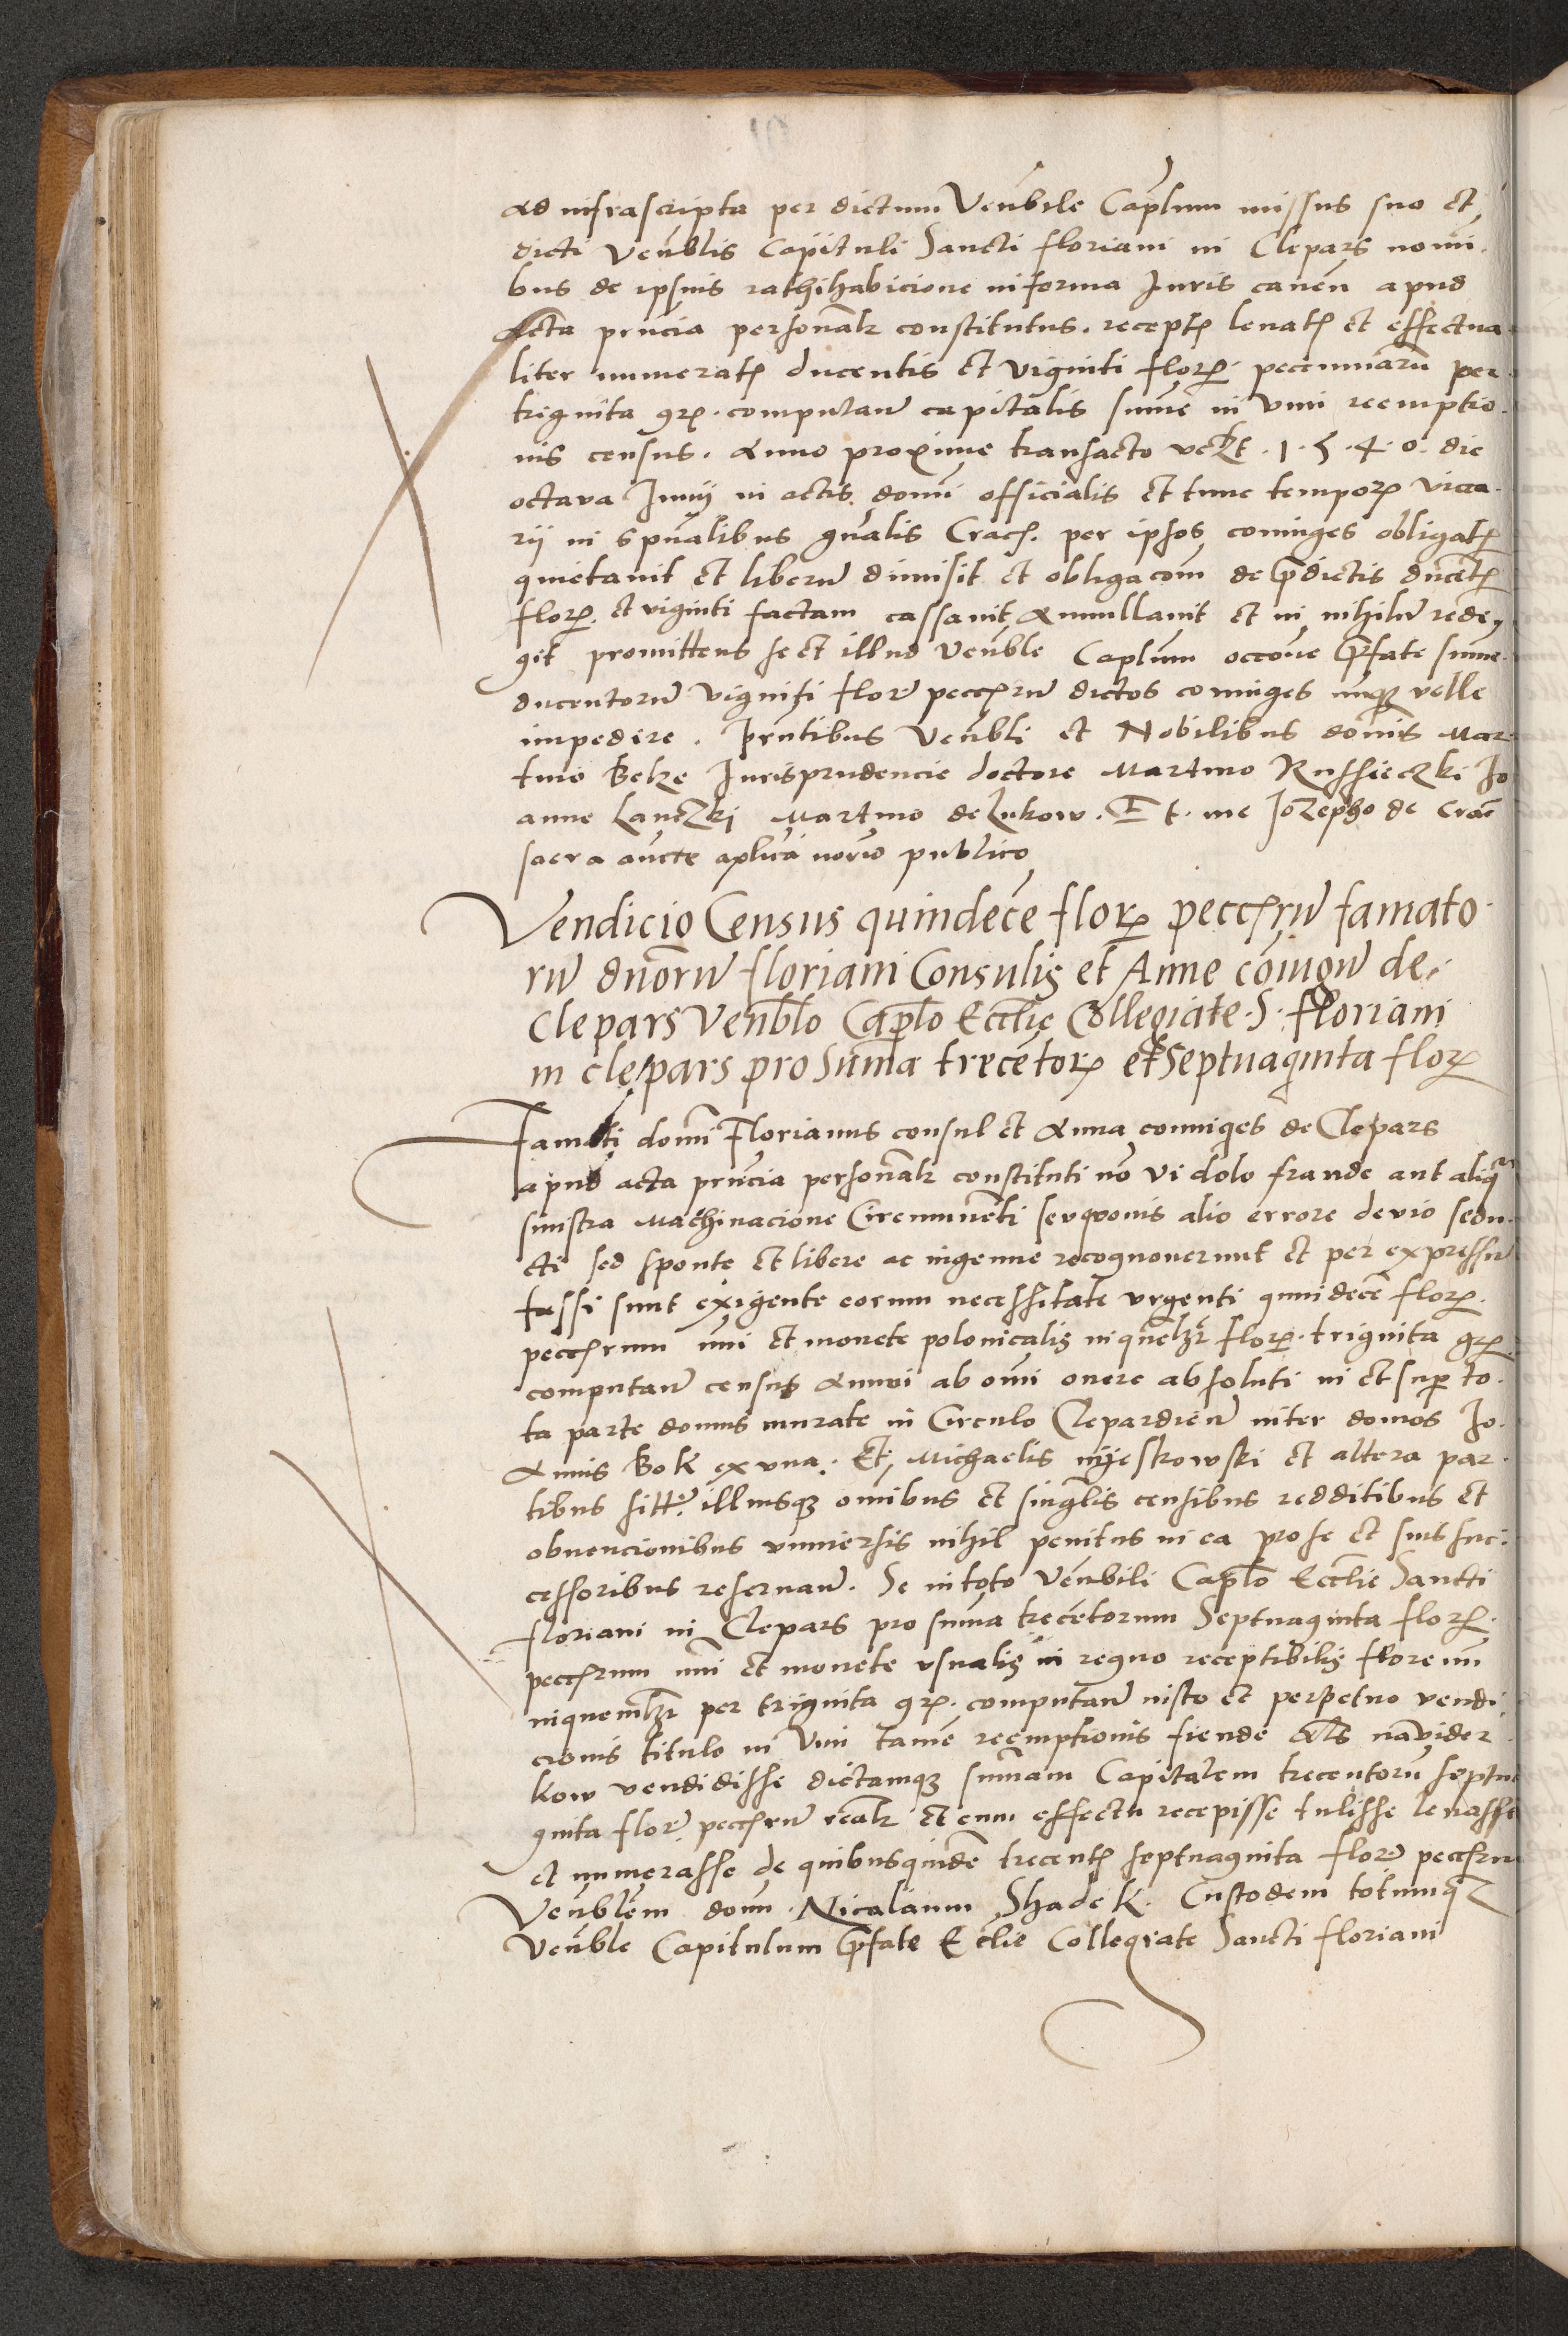 ad infrascripta per dictum Venbile Caplum missus suo et
dicti Venblis Capituli Sancti floriani in Clepars nomi.
bus de ipsius rathihabicione in forma Iuris canen apud
Acta pncia personalr constitutus. recept levat et effectua
liter numerat ducentis et viginti flor. pecuniarum per
triginta gr. computan capitalis sume in vim reemptio.
nis census. Anno proxime transacto vclzt .1.5.4.0. die
octava Iunij in actis domi officialis et tunc tempor vica
rii in spualibus gnalis Crac. per ipsos coniuges obligat
quietavit et liberum dimisit et obligacom de predictis ducet
flor. et viginti factam cassavit Annullavit et in nihilum rede
git promittens se et illud Venble Caplum occone prefate sume
ducentorum viginti flor pecchrum dictos coniuges nunq velle
impedire. Prntibus Venbli et Nobilibus domis Mar
tino Belze Iurisprudencie doctore Martino Russieczki Jo
anne Lanczkj Martino de Lukow. Et. me Jozepho de Crac
sacra aucte aplica norio publico
Vendicio Census quindece flor pecchrum famato
rum dnorum floriani Consulis et Anne coniugum de
Clepars Venblo Caplo Ecclie Collegiate. S. floriani
in clepars pro Suma trecentor et Septuaginta flor
Famati domi Florianus consul et Anna coniuges de Clepars
apud acta pncia personalr constituti no vi dolo fraude aut aliqa
sinistra Machinacione Circumventi seu quovis alio errore devio sedu
cti sed sponte et libere ac ingenue recognoverunt et per expressum
fassi sunt exigente eorum necessitate urgenti quindece flor.
pecchrum nui et monete polonicalis in quelzt flor. triginta gr.
computan census Annui ab omi onere absoluti in et sup to.
ta parte domus murate in Circulo Clepardien inter domos Jo.
Annis Bok ex una. Et Michaelis nijeskowski et altera par.
tibus sitt. illiusq omibus et singlis censibus redditibus et
obvencionibus universis nihil penitus in ea pro se et suis suc.
cessoribus reservan. Se in toto Venbili Caplo Ecclie Sancti
floriani in Clepars pro suma trecentorum Septuaginta flor.
pecchrum nui et monete usualis in regno receptibilis florenum
inquemlzt per triginta gr. computan iusto et perpetuo vendi
cionis titulo in Vim tame reemptionis fiende Als navider
kow vendidisse dictamq sumam Capitalem trecentorum septua
ginta flor pecchrum realr et cum effectu recepisse tulisse levasse
et numerasse de quibusquide trecent septuaginta flor pecchrum
Venblem dom. Nicolaum Shadek. Custodem totumq
Venble Capitulum prefate Eclie Collegiate Sancti floriani